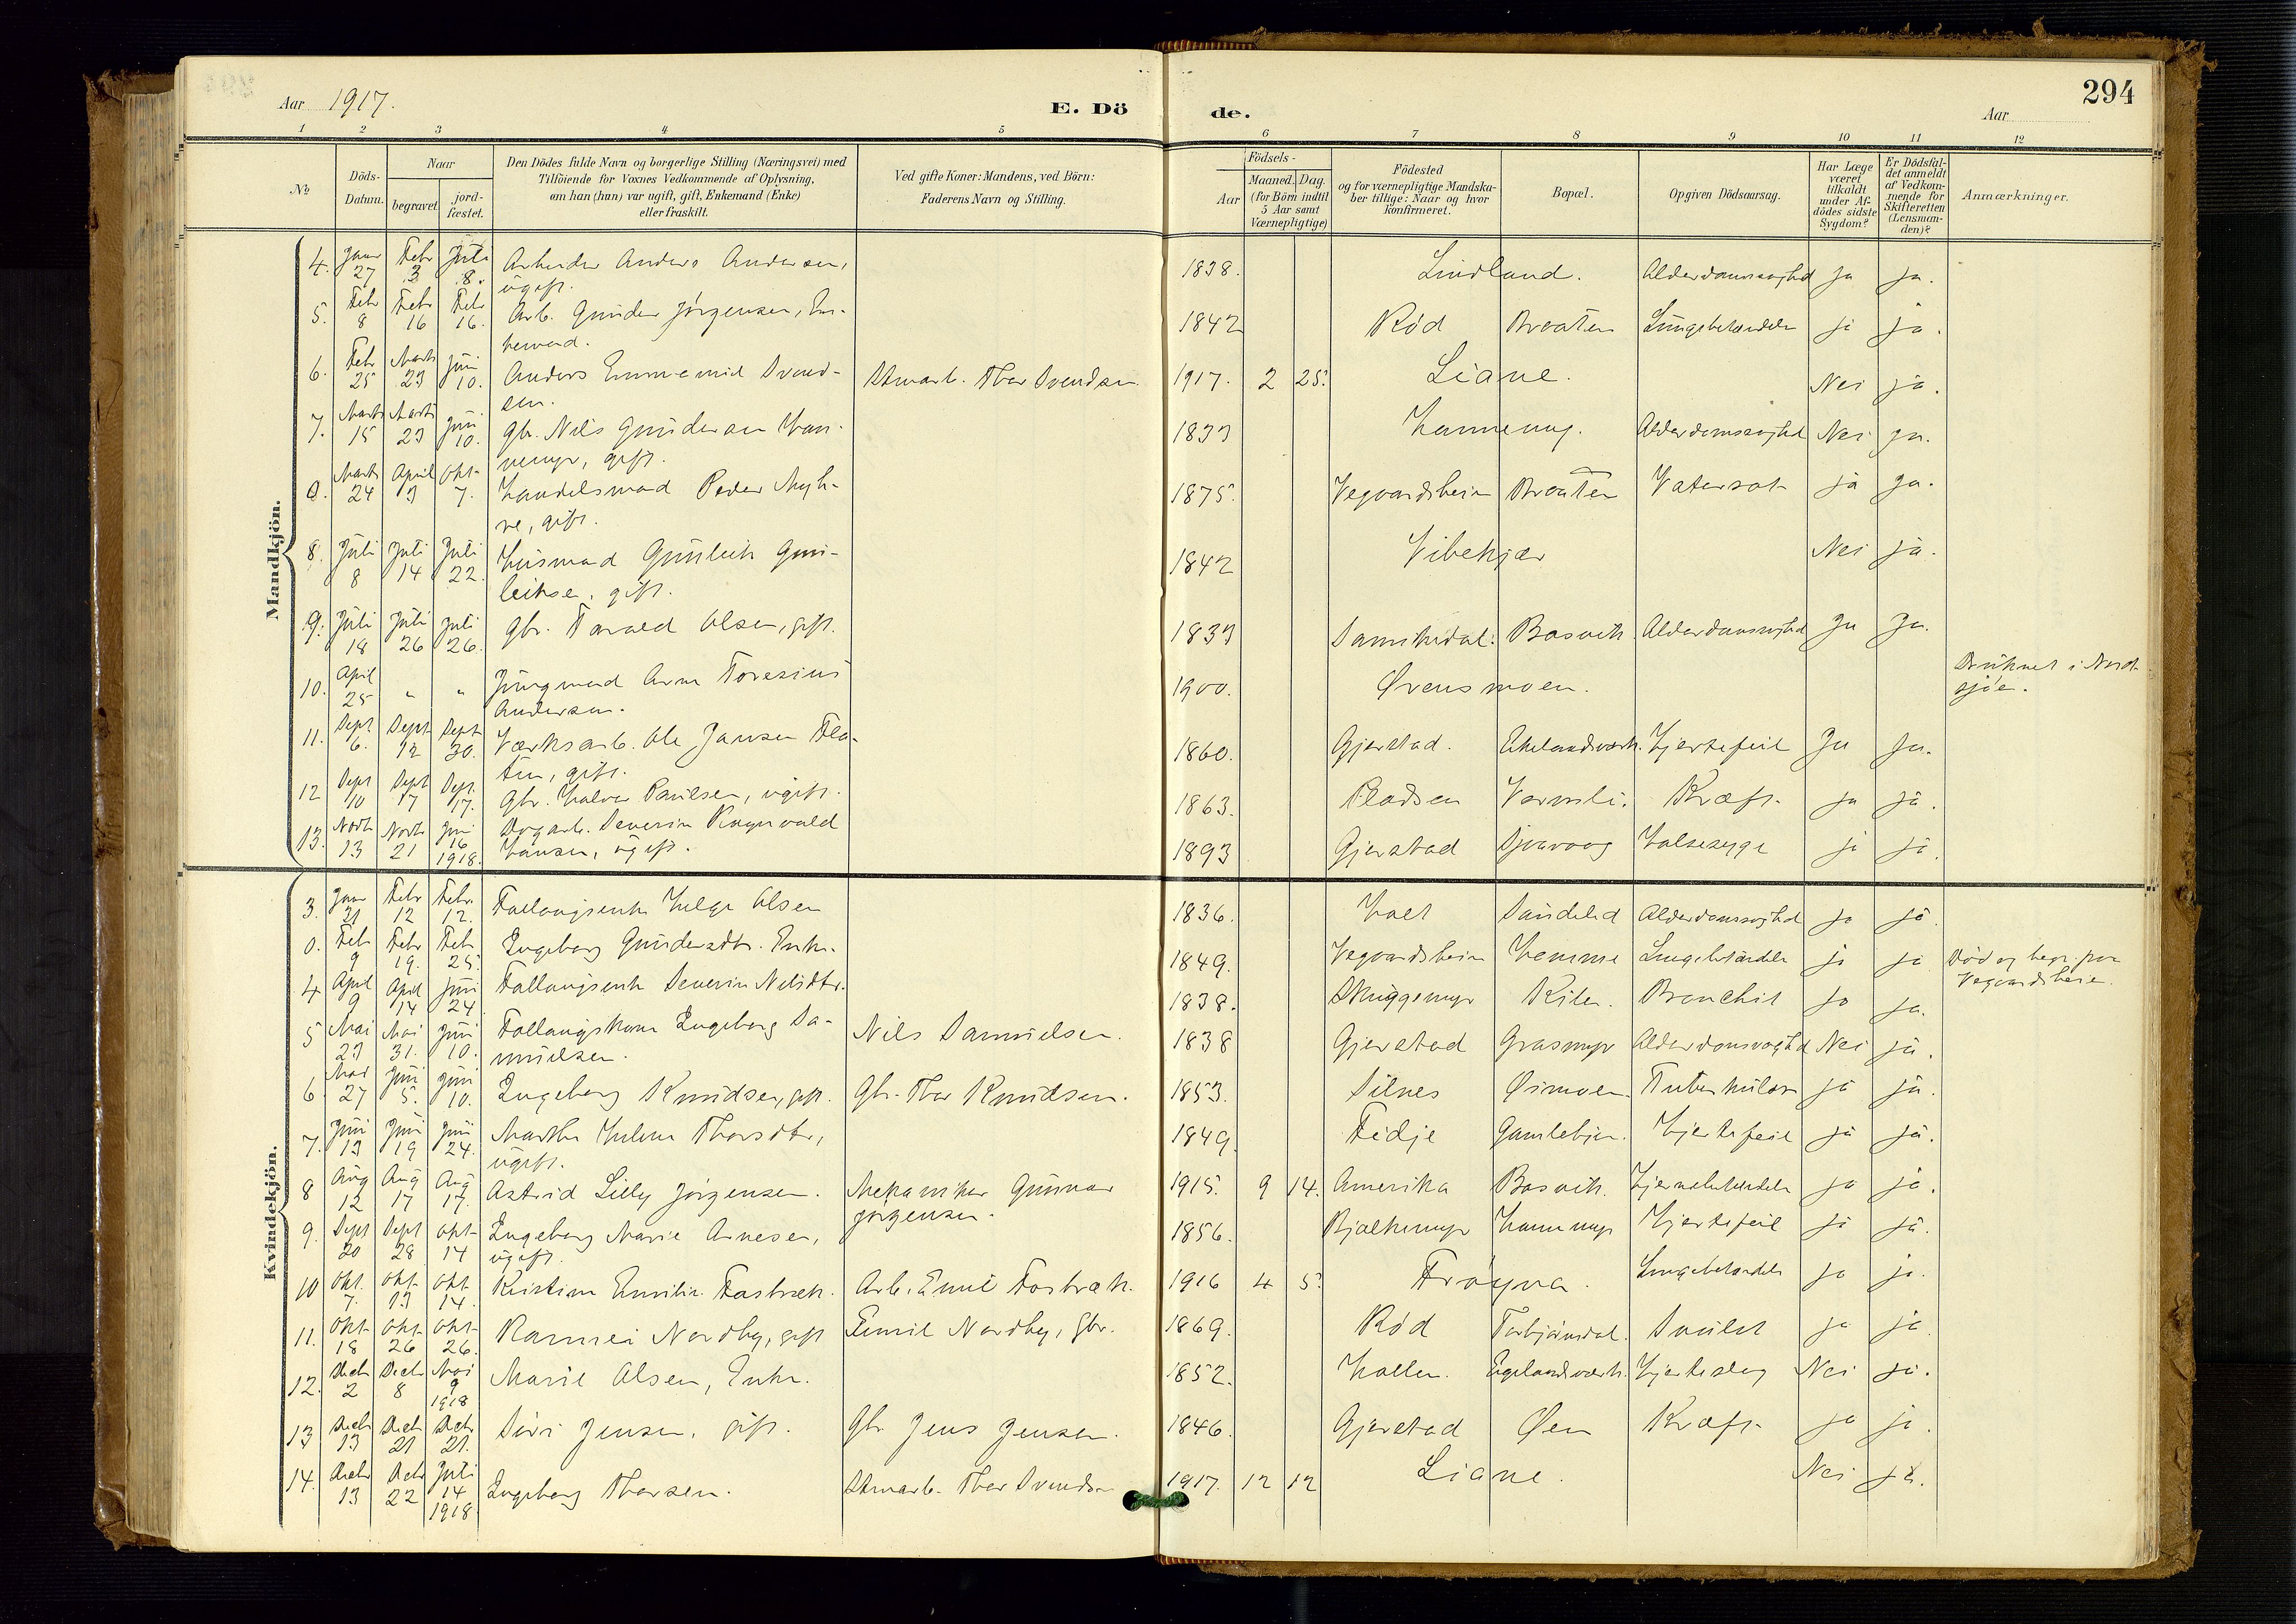 294
Aar 1917.
E. Dö
de.
Aar
1 2 3 4 5 6 7 8 9 10 11 12
№
Döds-Datum.
Naar
begravet.
jord-fæstet.
Den Dödes fulde Navn og borgerlige Stilling (Næringsvei) med
Tilföiende for Voxnes Vedkommende af Oplysning,
om han (hun) var ugift, gift, Enkemand (Enke)
eller fraskilt.
Ved gifte Koner: Mandens, ved Börn:
Faderens Navn og Stilling.
Födsels-
Aar
Maaned. Dag.
(for Börn indtil
5 Aar samt
Værnepligtige)
Födested
og for værnepligtige Mandska-
ber tillige: Naar og hvor
konfirmeret.
Bopæl.
Opgiven Dödsaarsag.
Har Læge
været
tilkaldt
under Af-
dödes sidste
Sygdom?
Er Dödsfal-
det anmeldt
af Vedkom-
mende for
Skifteretten
(Lensman-
den)?
Anmærkninger.
Mandkjön.
4. Januar 27 Febr 3 Juli 8. Arbeider Anders Andersen, ugift. 1838. Lindland. Alderdomssvaghed ja ja.
5. Febr 8 Febr 16 Febr 16. Arb. Gunder Jörgensen, En-
kemand. 1842 Röd Braaten Lungebetændelse ja ja.
6. Febr 25 Marts 23 Juni 10. Anders Svend-
sen. Thor Svendsen 1917. 2 25. Liane. Nei ja.
7. Marts 15 Marts 23 Juni 10. Gbr. Nils Gundersen Ham-
nemyr, gift. 1833 Hammemyr. Alderdomssvaghed Nei ja.
0. Marts 24 April 3 Okt 7. Handelsmand Peder Myh-
re, gift. 1875. Vegaardsheien Braaten Vatersot ja ja.
8. Juli 8 Juli 14 Juli 22. Husmand Gunleik Gun-
leiksen, gift. 1842 Vibekjær Nei ja.
9. Juli 18 Juli 26 Juli 26. Gbr. Tarald Olsen, gift. 1837 Sannikedal. Bosvik. Alderdomssvaghed Ja Ja.
10. April 25 " " Jungmand Toresius
Andersen. 1900. Øvensmoen. Druknet i Nord-
sjöen.
11. Sept 6. Sept 12 Sept 30. Værksarb. Ole Jansen Fla-
ten, gift. 1860. Gjerstad. Ekelandsværk. Hjertefeil Ja ja.
12 Sept 10 Sept 17 Sept. 17. Gbr. Halvor Paulsen, ugift. 1863. Pladsen Varmli. Kræft. ja ja.
13. Novb 13 Novb 21 Juni 16 1918. Severin Ragnvald
Hansen, ugift. 1893 Gjerstad Halsesyge ja ja.
Kvindekjön.
3. Januar 31 Febr 12 Febr. 12. Fattigenke Helge Olsen 1836. Holt Söndeled Alderdomssvaghed ja ja.
0. Feb 9 Febr 19. Feb 25. Ingeborg Gundersdtr. Enke. 1849. Vegaardsheien Hemmi Lungebetændelse ja ja Död og begr. paa
Vegaardsheien.
4 April 9 April 14 Juni 24 Severin Nilsdtr. 1838. Skuggemyr Kilen. Bronchit ja ja.
5 Mai 23 Mai 31. Juni 10. Ingeborg Sa-
muelsen. Nils Samuelsen. 1838 Gjerstad Grasmyr Alderdomssvaghed Nei ja.
6. Mai 27 Juni 5. Juni 10. Ingeborg Knudsen, gift. Gbr. Thor Knudsen. 1853. Silnes Øimoen. Tuberkulose ja ja.
7. Juni 13 Juni 19 Juni 24. Marthe Helene Thorsdtr,
ugift. 1849. Fidje Gamlebjen. Hjertefeil ja ja.
8 Aug 12 Aug 17 Aug 17. Astrid Lilly Jörgensen. Mekaniker Gunnar
Jörgensen. 1915. 9 14. Amerika Bosvik. Hjernebetændelse ja ja.
9. Sept 20 Sept 28 Okt 14 Ingeborg Marie Arnesen,
ugift. 1856. Bjalkemyr Hammemyr Hjertefeil ja ja.
10 Okt. 7. Okt. 13 Okt 14. Kristine Emilie Fosbræk. Arb. Emil Fosbræk. 1916 4 5. Fröyna. Lungebetændelse ja ja.
11. Okt. 18 Okt 26 Okt 26. Ramnei Nordby, gift Emil Nordby, Gbr. 1869. Röd Torbjörnsdal. Svulst ja ja
12. Decbr 2 Decbr 8 Mai 9 1918 Marie Olsen, Enke. 1852. Hallen. Egelandsværk. Hjerteslag Nei ja.
13 Decbr 13 Decbr 21 Decbr 21. Siri Jensen, gift. Gbr. Jens Jensen. 1846. Gjerstad Øen Kræft ja ja.
14. Decbr 13 Decbr 22 Juli 14 1918 Ingeborg Thorsen. Thor Svendsen 1917. 12 12 Liane. Nei ja.